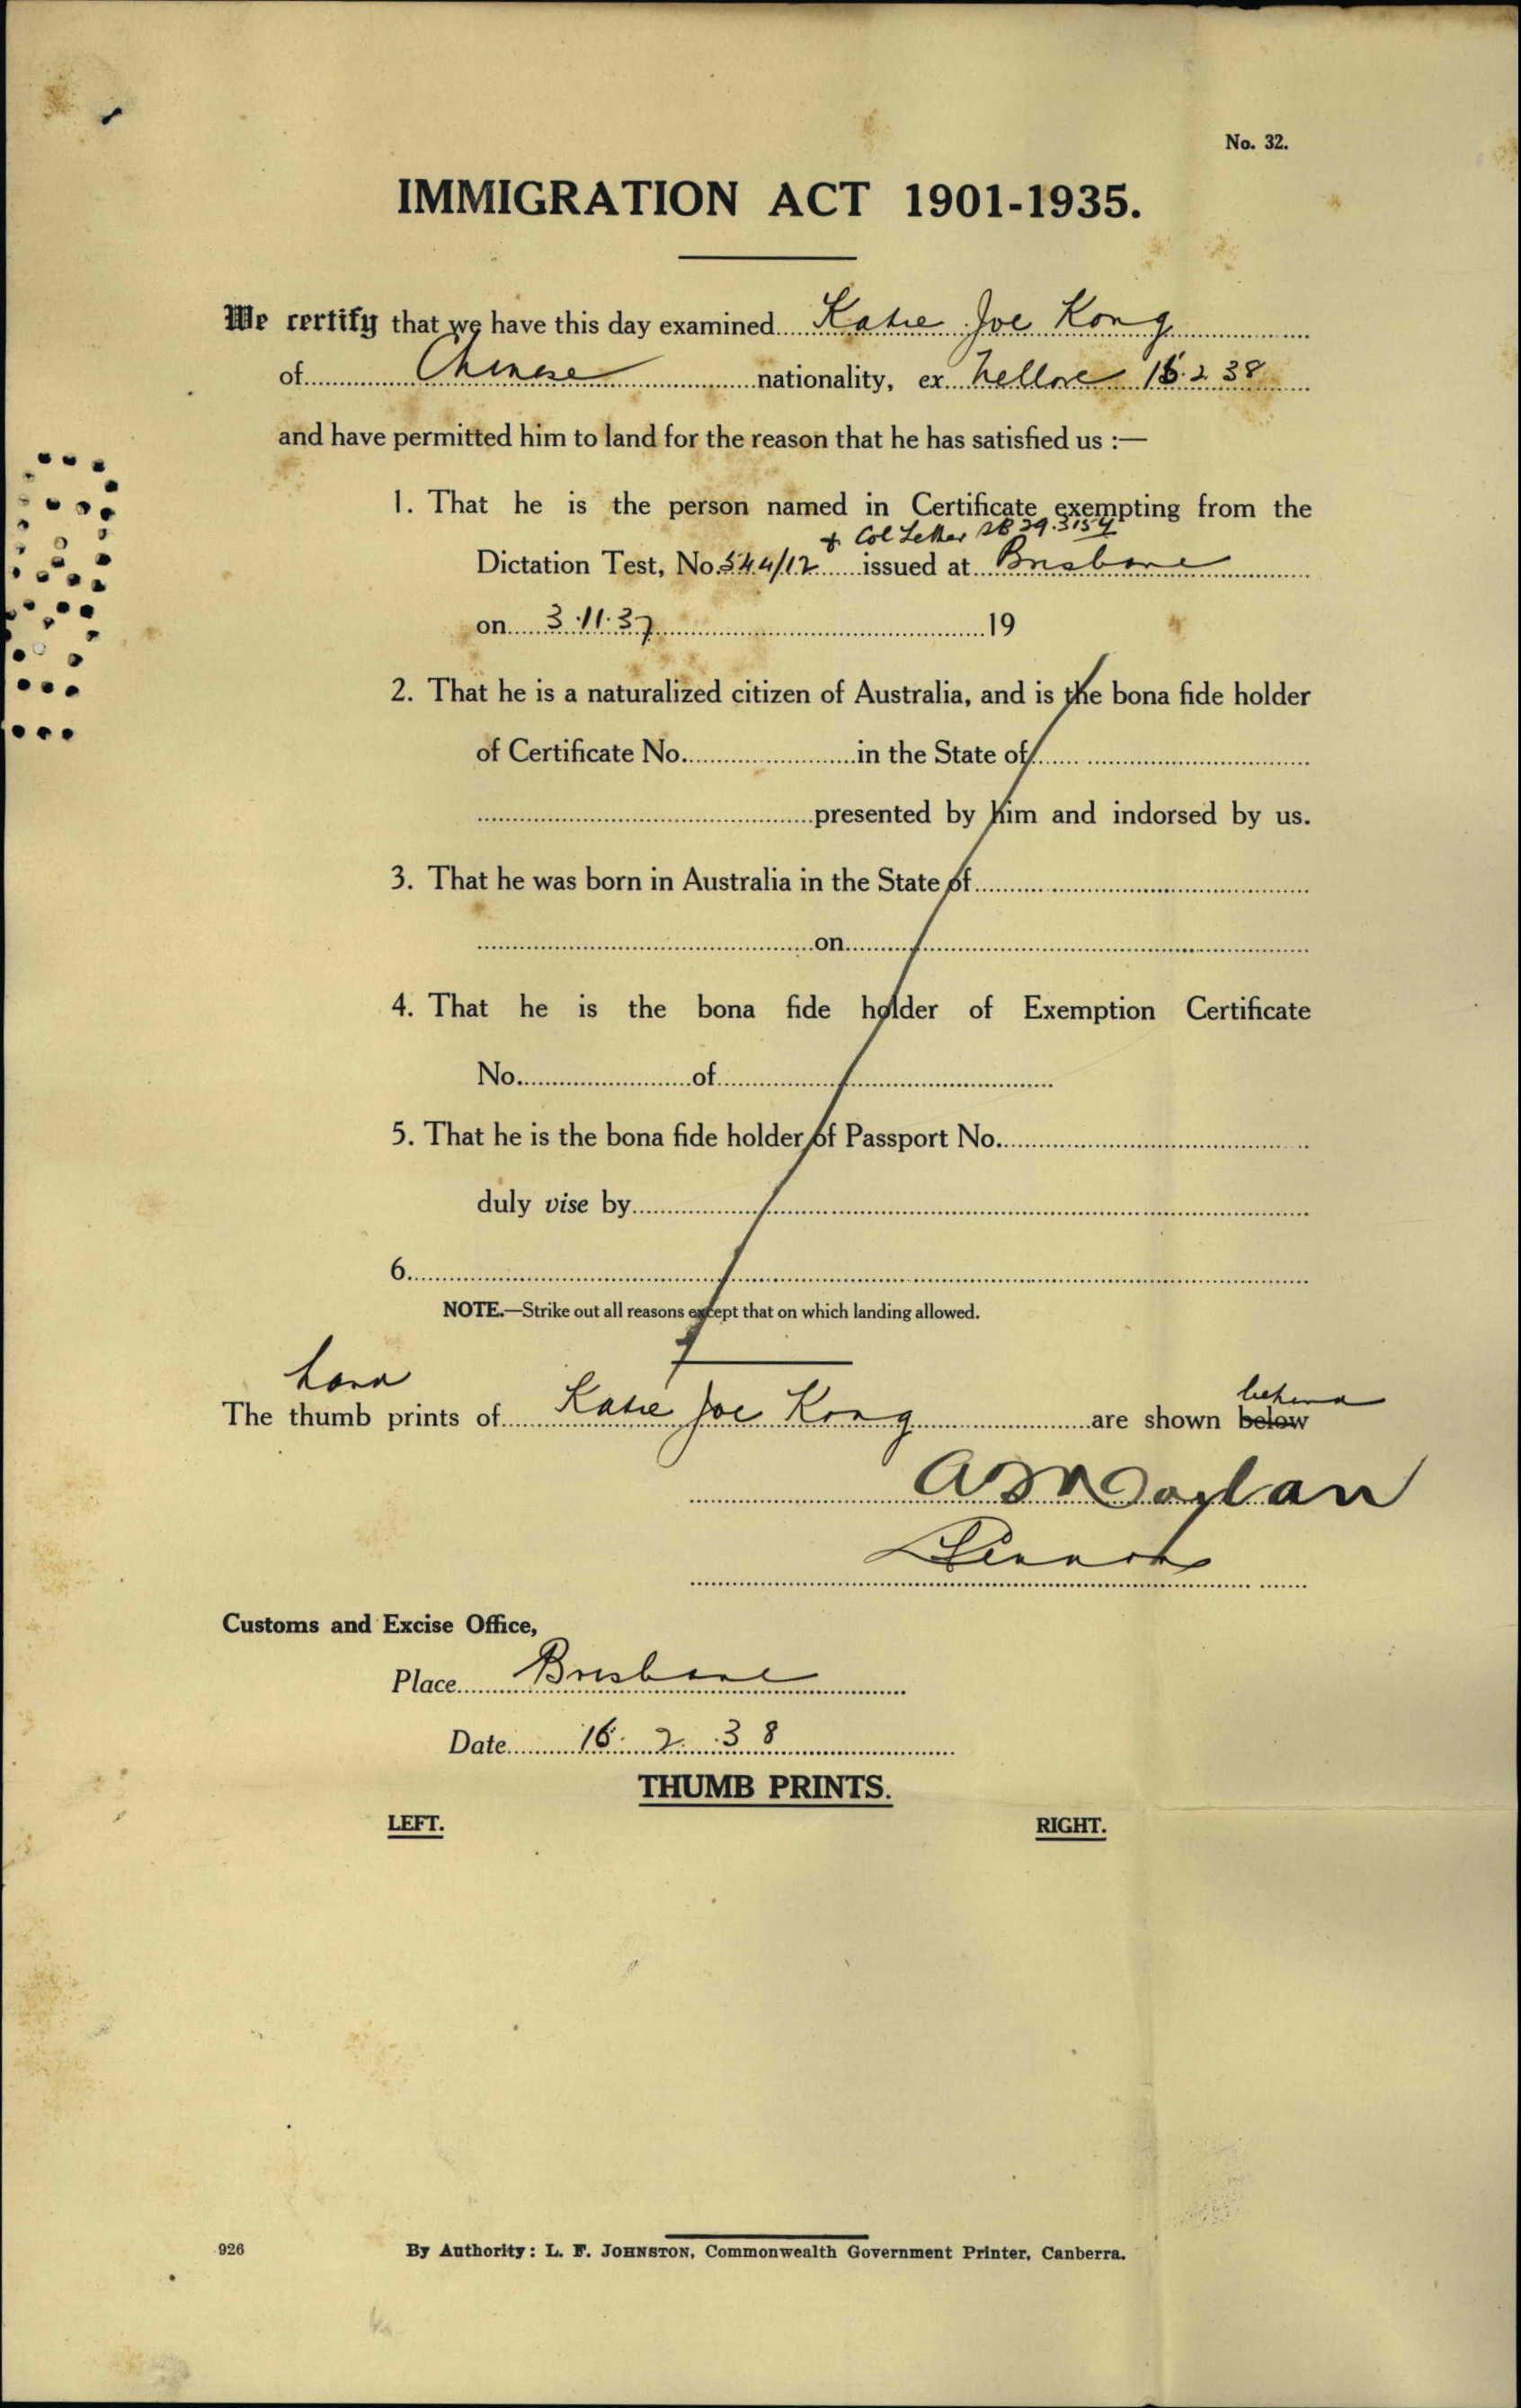 No. 32.
IMMIGRATION ACT 1901-1935.
We certify that we have this day examined Katie Joe Kong
of Chinese nationality, ex Nellore 16.2.38
and have permitted him to land for the reason that he has satisfied us :—
1. That he is the person named in Certificate exempting from the
+ Col Letter 3154
Dictation Test, No. 544/12 issued at Brisbane
on 3.11.37 19
2. That he is a naturalized citizen of Australia, and is the bona fide holder
of Certificate No. in the State of
presented by him and indorsed by us.
3. That he was born in Australia in the State of
on
4. That he is the bona fide holder of Exemption Certificate
No. of
5. That he is the bona fide holder of Passport No.
duly vise by
6.
NOTE.—Strike out all reasons except that on which landing allowed.
hand
behind
The thumb prints of Katie Joe Kong are shown below
Customs and Excise Office,
Place Brisbane
Date 16. 2. 38
THUMB PRINTS.
LEFT. RIGHT.
926 By Authority: L. F. JOHNSTON, Commonwealth Government Printer, Canberra.